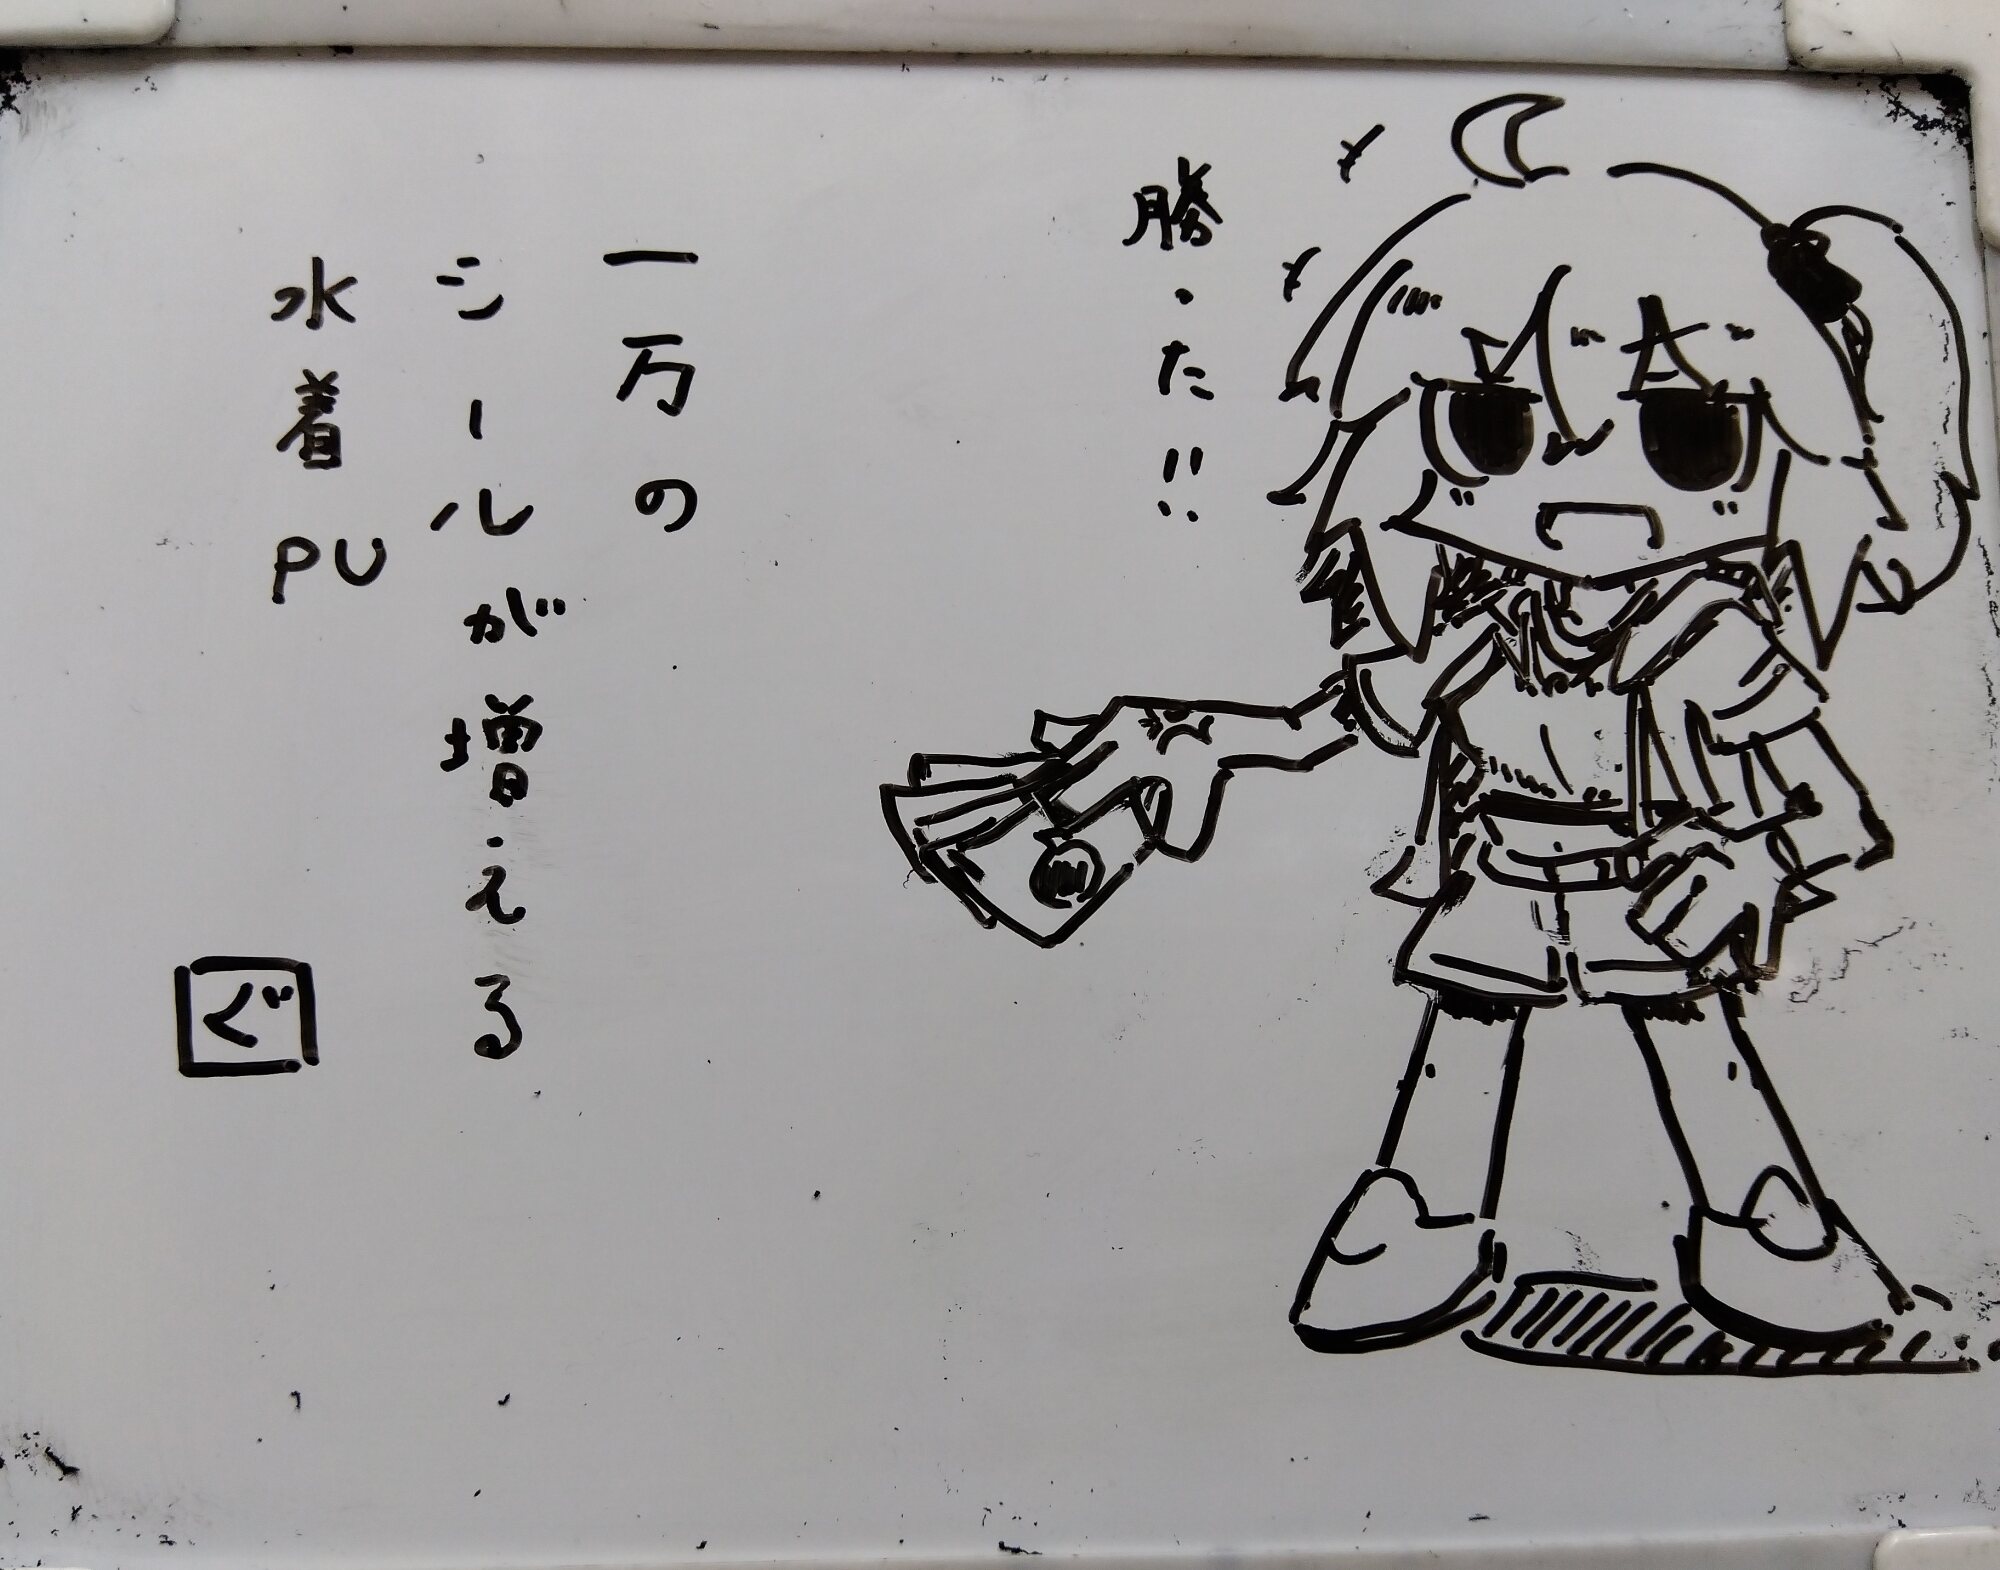 勝った!!
一万の
シールが増える
水着PU
ぐ